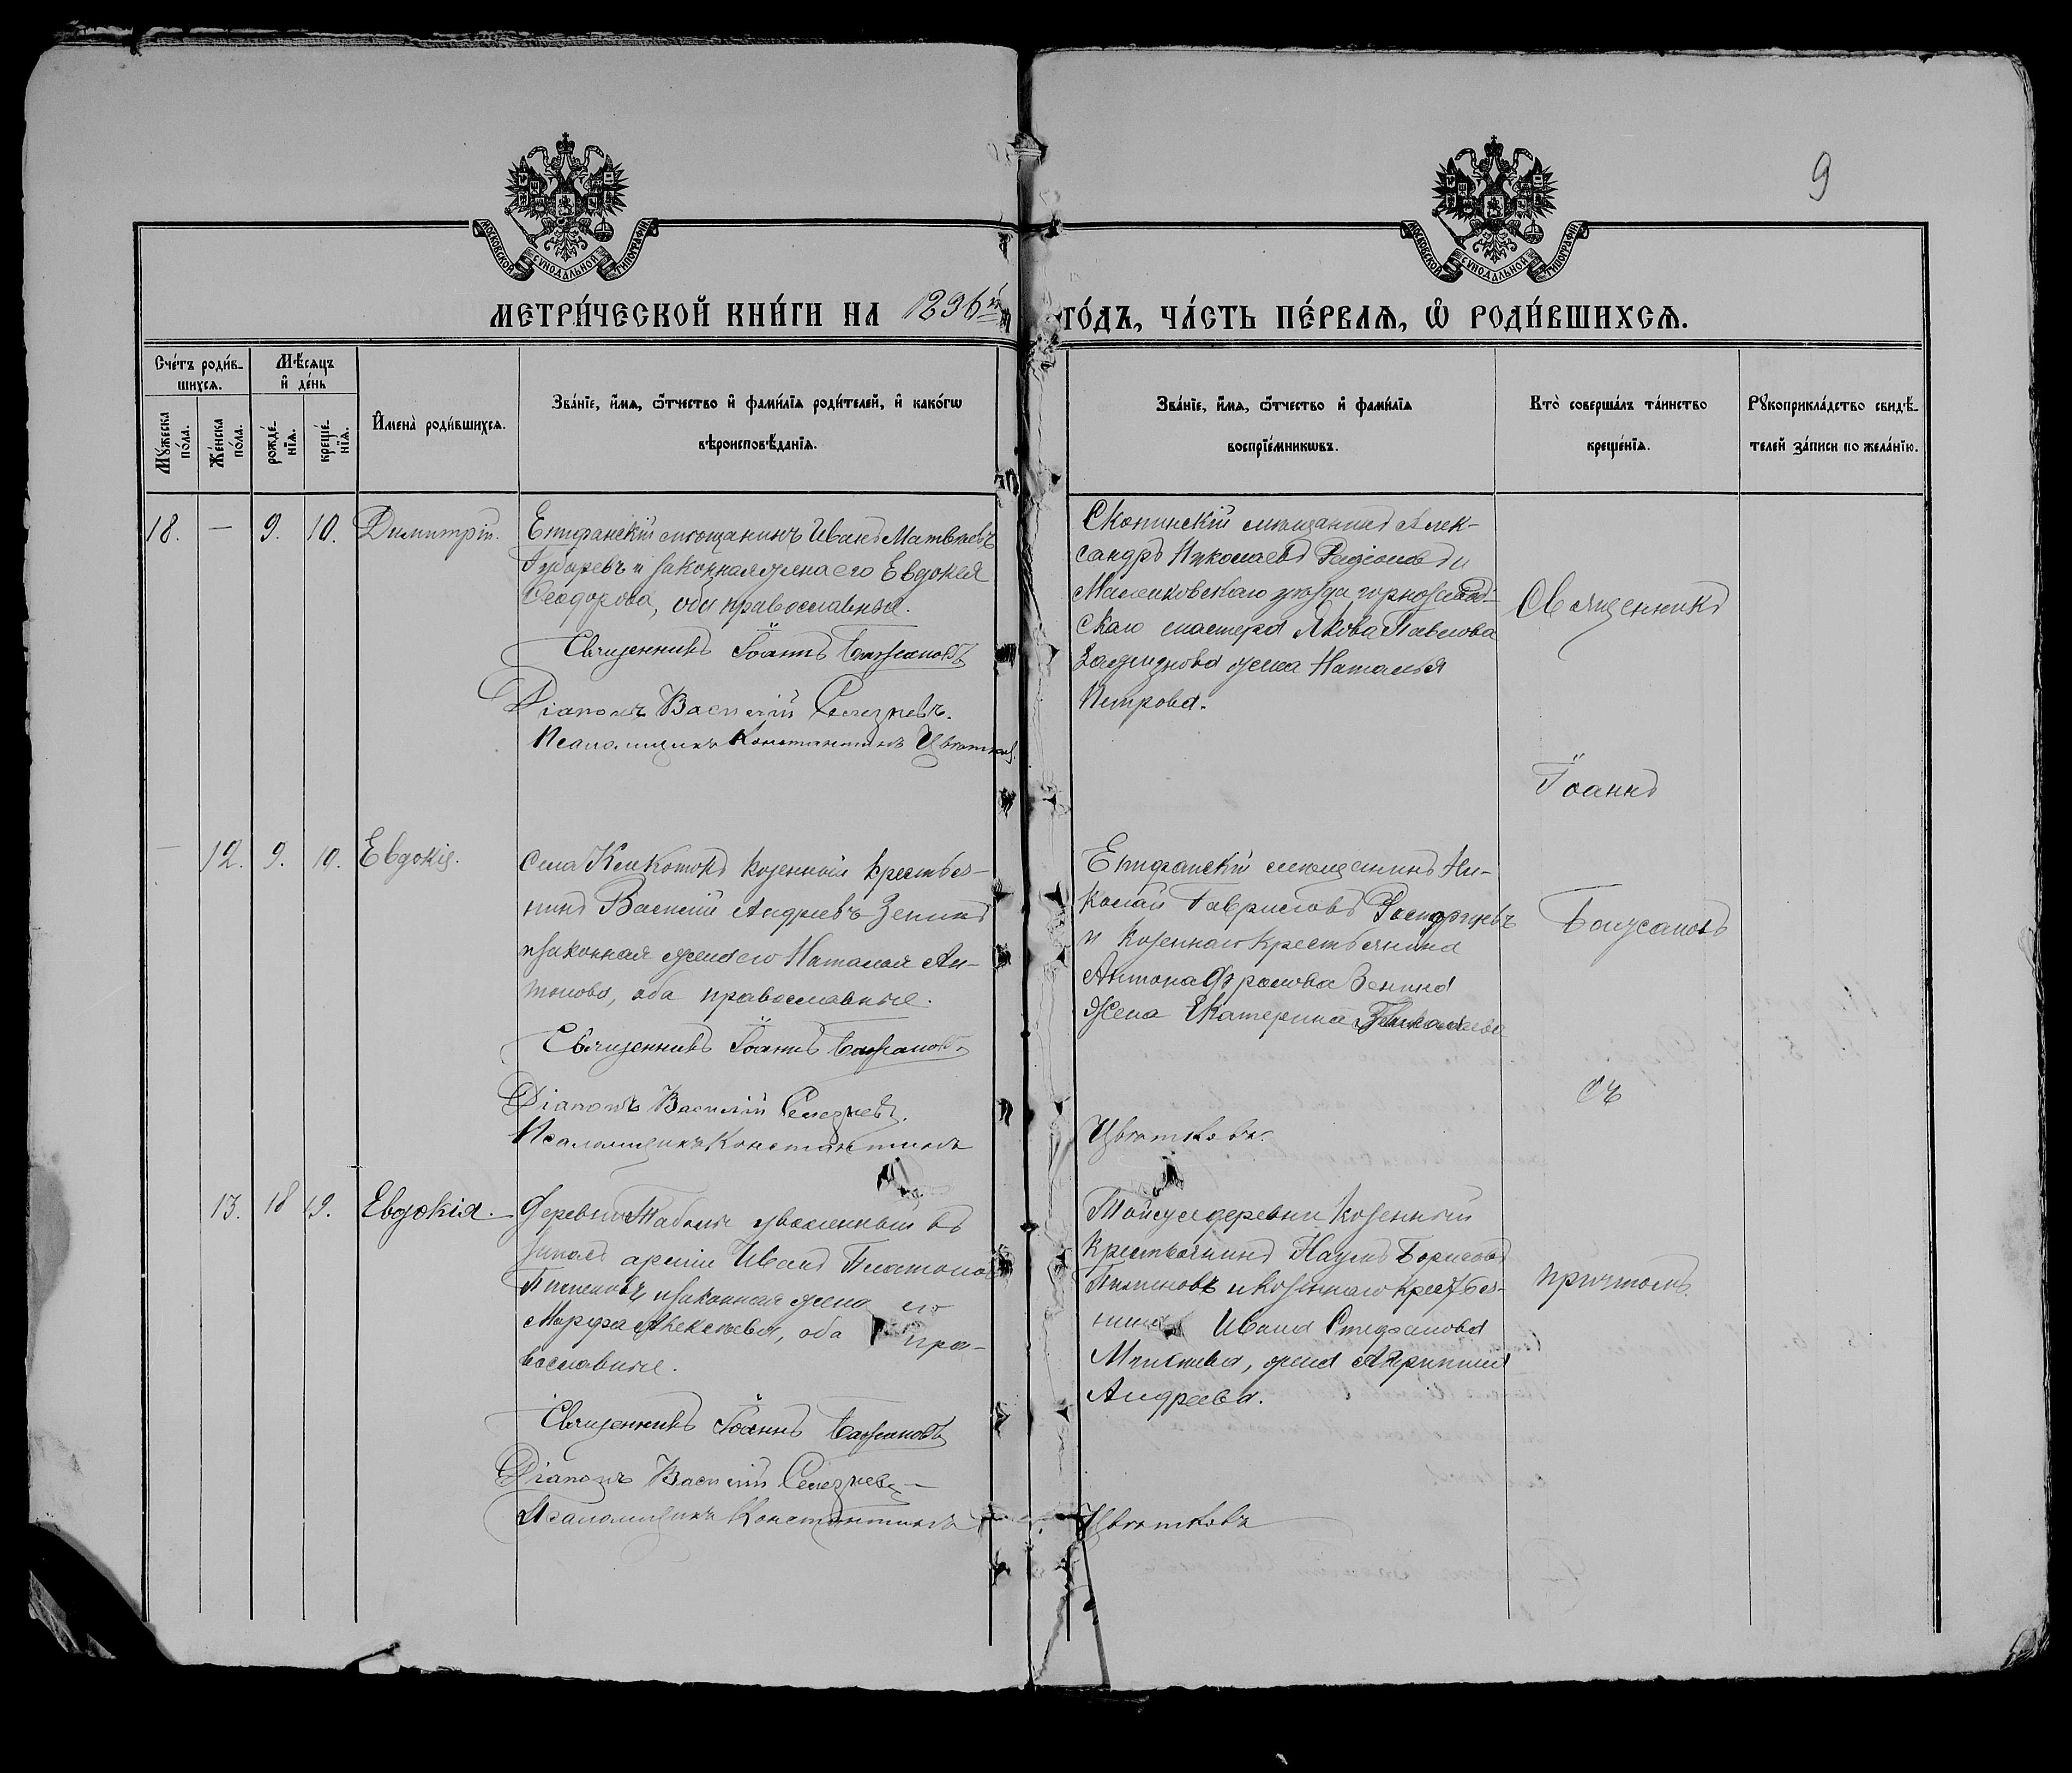 9
МОСКОВСКОЙ СѴНОДАЛЬНОЙ ТИПОГРАФІИ
МОСКОВСКОЙ СѴНОДАЛЬНОЙ ТИПОГРАФІИ
МЕТРИ́ЧЕСКОЙ КНИ́ГИ НА 1896й ГО́ДЪ, ЧА́СТЬ ПЕ́РВАѦ, Ѡ҆ РОДИ́ВШИХСѦ.
Сче́тъ роди́в-
шихсѧ.
Мꙋ́жеска по́ла.
Же́нска по́ла.
Мѣ́сѧцъ
и҆ де́нь
рожде́-
нїѧ.
креще́-
нїѧ.
И҆мена̀ роди́вшихсѧ.
Зва́нїе, и҆́мѧ, ѻ҆́тчество и҆ фами́лїѧ роди́телей, и҆ како́гѡ
вѣроисповѣ́данїѧ.
Зва́нїе, и҆́мѧ, ѻ҆́тчество и҆ фами́лїѧ
воспрїе́мникѡвъ.
Кто̀ соверша́лъ та́инство
креще́нїѧ.
Рꙋкоприкла́дство свидѣ́-
телей за́писи по жела́нїю.
18. — 9. 10. Димитрій.
Епифанскій мѣщанинъ Иванъ Матвѣевъ
и законная жена его Евдокія
Ѳеодорова, оба православные.
Священникъ Іоаннъ Бажановъ
Діаконъ Василій Селезневъ.
Псаломщикъ Константинъ Цвѣтковъ.
Скопинскій мѣщанинъ Алек-
сандръ Николаевъ Родіоновъ и
уѣзда горнозавод-
скаго мастера Якова Павлова
жена Наталья
Петрова.
Священникъ
Іоаннъ
Бажановъ
съ
причтомъ.
— 12. 9. 10. Евдокія.
Села казенный крестья-
нинъ Василій Андреевъ Зенинъ
и законная жена его Наталья Ан-
тонова, оба православные.
Священникъ Іоаннъ Бажановъ
Діаконъ Василій Селезневъ.
Псаломщикъ Константинъ Цвѣтковъ.
Епифанскій мѣщанинъ Ни-
колай Гавриловъ Расторгуевъ
и казеннаго крестьянина
Антона Фролова Зенина
жена Екатерина
13. 18 19. Евдокія.
Деревни Табола уволенный въ
запасъ арміи Иванъ Платоновъ
и законная жена его
Марфа Алексѣева, оба пра-
вославные.
Священникъ Іоаннъ Бажановъ
Діаконъ Василій Селезневъ
Псаломщикъ Константинъ Цвѣтковъ
Той же деревни казенный
крестьянинъ Наумъ Борисовъ
и казеннаго крестья-
нина Ивана Стефанова
жена Агрипина
Андреева.